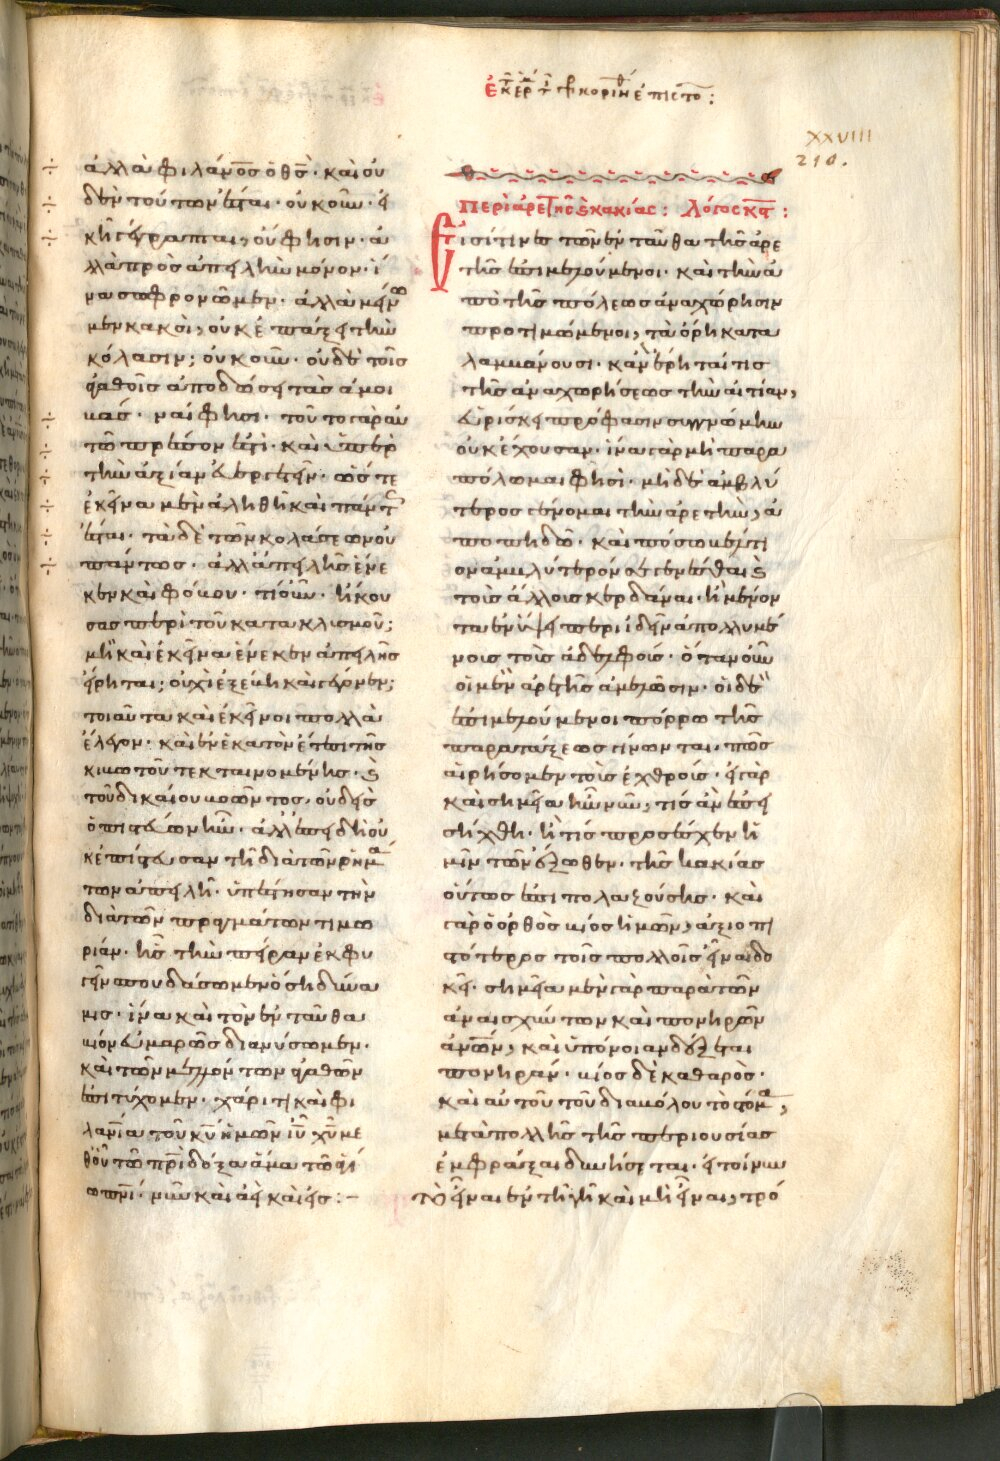 ἐκ τ ἑρ τ πρ κοριν ἐπιστο :
XXVIII
210.
ἀλλὰ φιλάνος ὁ θς· καὶ οὐ
δὲν τούτων ἔσται· οὐκοῦν· εἰ
κῆ γέγραπται, οὔ φησιν· ἀ
λλὰ πρὸς ἀπειλὴν μόνον· ἵ
να σωφρονῶμεν· ἀλλὰ μένω
μεν κακοὶ, οὐκ ἐπάξει τὴν
κόλασιν; οὐκοῦν· οὐδὲ τοῖς
ἀγαθοῖς ἀποδώσει τὰς ἀμοι
βάς· ναί φησι· τοῦτο γὰρ αὐ
τῶ πρέπον ἐστὶ· καὶ ὑπὲρ
τὴν ἀξίαν εὐεργετεῖν· ὥστε
ἐκεῖνα μὲν ἀληθῆ καὶ πάντως
ἔσται· τὰ δὲ τῶν κολάσεων οὐ
πάντως· ἀλλ' ἀπειλῆς ἕνε
κεν καὶ φόβου· τί οὖν· ἠκού
σας περὶ τοῦ κατακλυσμοῦ;
μὴ κἀκεῖνα ἕνεκεν ἀπειλῆς
εἴρηται; οὐχὶ ἐξέβη καὶ γέγονεν;
τοιαῦτα κἀκεῖνοι πολλὰ
ἔλεγον· καὶ ἐν ἑκατὸν ἔτεσι τῆς
κιβωτοῦ τεκταινομένης· καὶ
τοῦ δικαίου βοῶντος, οὐδεὶς
ὁ πιστεύων ἦν· ἀλλ' ἐπειδὴ οὐ
κ ἐπίστευσαν τῆ διὰ τῶν ῥημά
των ἀπειλῆ· ὑπέστησαν τὴν
διὰ τῶν πραγμάτων τιμω
ρίαν· ἧς τὴν πεῖραν ἐκφυ
γεῖν σπουδάσωμεν ὅση δύνα
μις· ἵνα καὶ τὸν ἐνταῦθα
βίον εὐμαρῶς διανύσωμεν·
καὶ τῶν μελλόντων ἀγαθῶν
ἐπιτύχωμεν· χάριτι καὶ φι
λανία τοῦ κυ ἡμῶν ιυ χυ με
θ' οὗ τῶ πρὶ δόξα ἅμα τῶ ἁγί
ω πνι· νῦν καὶ ἀεὶ καὶ εἰς :–
περὶ ἀρετῆς καὶ κακίας : Λόγος κϛ :
Εἰσί τινες τῶν ἐνταῦθα τῆς ἀρε
τῆς ἐπιμελούμενοι· καὶ τὴν ἀ
πὸ τῆς πόλεως ἀναχώρησιν
προτιμώμενοι, τὰ ὄρη κατα
λαμβάνουσι· κἂν ἔρηταί τις
τῆς ἀναχωρήσεως τὴν αἰτίαν,
εὑρίσκει πρόφασιν συγγνώμην
οὐκ ἔχουσαν· ἵνα γὰρ μὴ παρα
πόλωμαι φησί· μὴ δὲ ἀμβλύ
τερος γένομαι τὴν ἀρετὴν, ἀ
ποπηδῶ· καὶ πόσω βέλτι
ον ἀμβλύτερόν σε γενέσθαι καὶ
τοὺς ἄλλους κερδάναι· ἢ μένον
τα ἐν ὕψει περιιδεῖν ἀπολλυμέ
νους τοὺς ἀδελφούς· ὅταν οὖν
οἱ μὲν ἀρετῆς ἀμελῶσιν· οἱ δὲ
ἐπιμελούμενοι πόρρω τῆς
παρατάξεως γίνωνται· πῶς
αἱρήσομεν τοὺς ἐχθρούς· εἰ γὰρ
καὶ σημεῖα ἦν νῦν, τίς ἂν ἐπεί
σθη· ἢ τίς προσεῖχεν ἡ
μῖν τῶν ἔξωθεν· τῆς κακίας
οὕτως ἐπιπολαζούσης· καὶ
γὰρ ὁ ὀρθὸς βίος ἡμῶν, ἀξιοπι
στότερος τοῖς πολλοῖς εἶναι δο
κεῖ· σημεῖα μὲν γὰρ παρὰ τῶν
ἀναισχύντων καὶ πονηρῶν
ἀνῶν, καὶ ὑπόνοιαν δέξεται
πονηράν· βίος δὲ καθαρὸς·
καὶ αὐτοῦ τοῦ διαβόλου τὸ στόμα,
μετὰ πολλῆς τῆς περιουσίας
ἐμφράξαι δυνήσεται· εἰ τοίνυν
τὸ εἶναι ἐν τῆ γῆ καὶ μὴ εἶναι, τρό